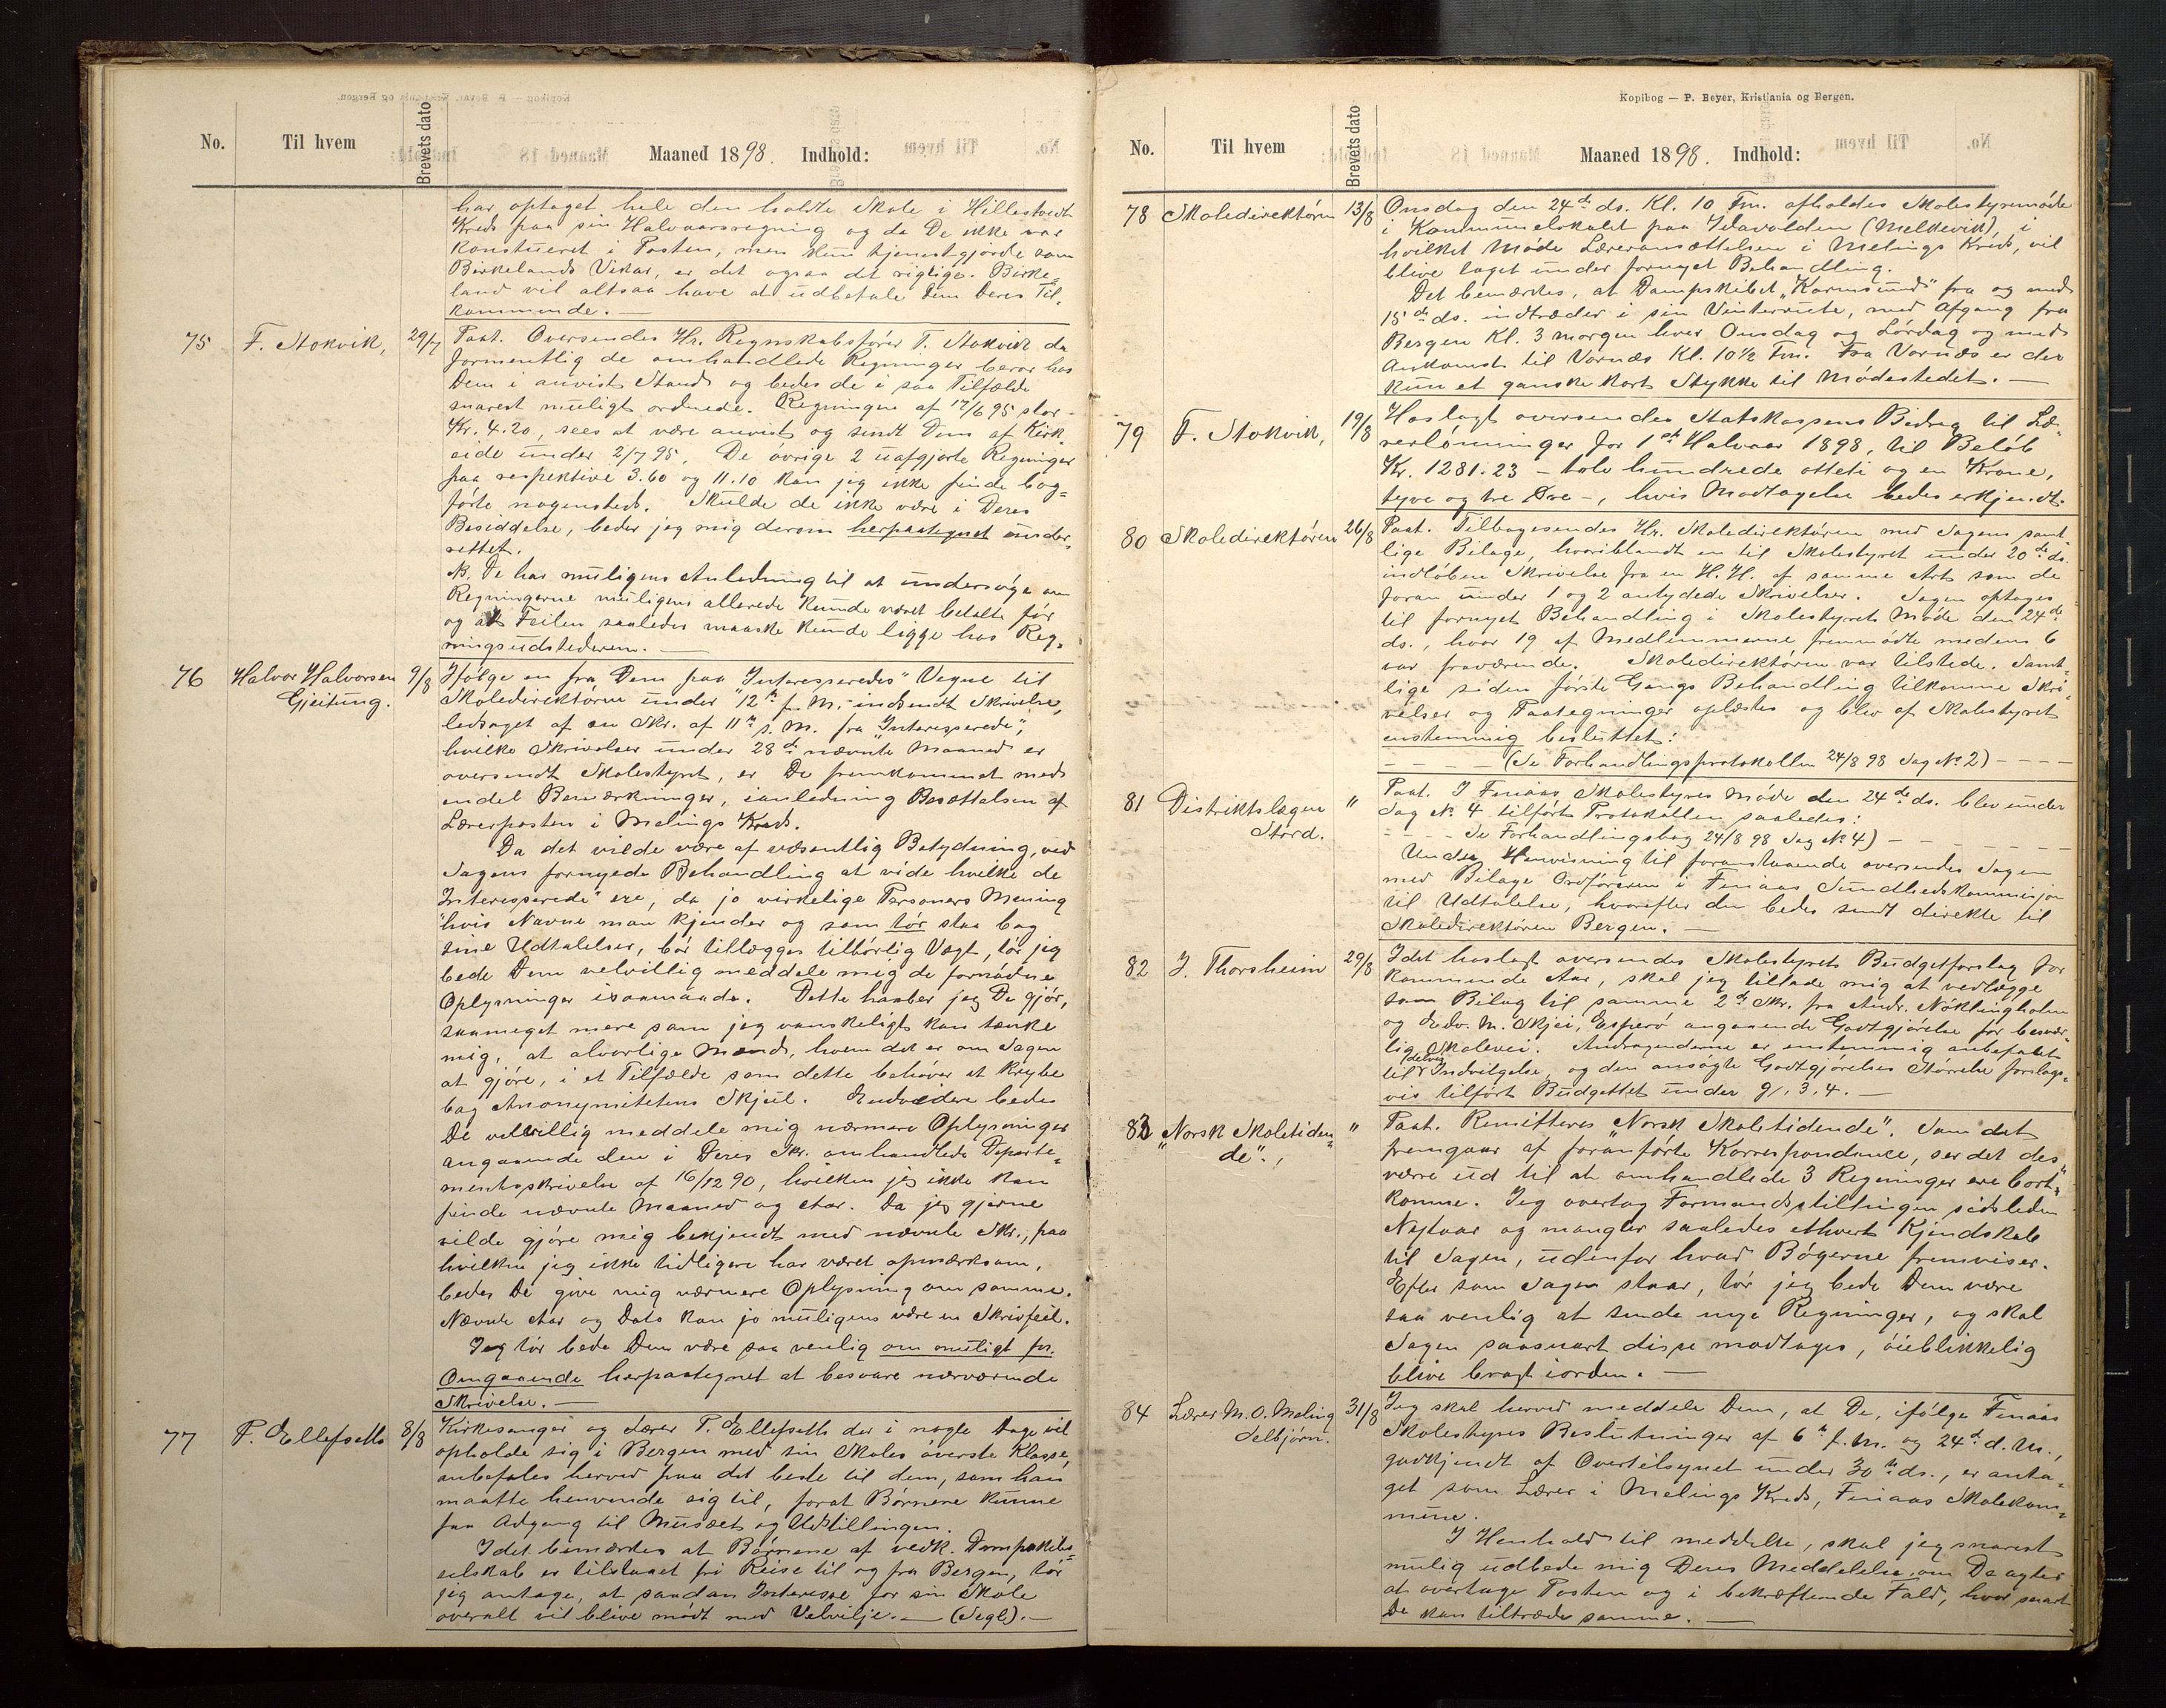 No.
Til hvem
Brevets dato
Maaned 1898. Indhold:
har optaget hele den holdte Skole i Hillestvedt
Kreds paa sin Halvaarsregning og da De ikke var
konstitueret i Posten, men kun tjenestgjorde som
Birkelands Vikar, er det ogsaa det rigtige. Birke-
land vil altsaa have at udbetale Dem Deres Til-
kommende. —
75 F. Stokvik, 29/7 Paat. Oversendes Hr. Regnskabsfører F. Stokvik da
formentlig de omhandlede Regninger beror hos
Dem i anvist Stand og bedes de i saa Tilfælde
snarest muligt ordnede. Regningen af 17/6 95 stor
Kr. 4.20, sees at være anvist og sendt Dem af Kirk-
eide under 2/7 95. De øvrige 2 uafgjorte Regninger
paa respektive 3.60 og 11.10 kan jeg ikke finde bog-
førte nogensteds. Skulde de ikke være i Deres
Besiddelse, beder jeg mig derom herpaategnet under-
rettet.
NB. De har muligens Anledning til at undersøge om
Regningerne muligens allerede kunde været betalte før
og at Feilen saaledes maaske kunde ligge hos Reg-
ningsudstederen. —
76 Halvor Halvorsen 9/8 Ifølge en fra Dem paa "Interesseredes" Vegne til
Gjeitung. Skoledirektøren under 12te f. M. indsendt Skrivelse,
ledsaget af en Skr. af 11te s. M. fra "Interesserede",
hvilke Skrivelser under 28de nævnte Maaned er
oversendt Skolestyret, er De fremkommet med
endel Bemærkninger, ianledning Besættelsen af
Lærerposten i Melings Kreds.
Da det vilde være af væsentlig Betydning, ved
Sagens fornyede Behandling at vide hvilke de
"Interesserede" ere, da jo virkelige Personers Mening
hvis Navne man kjender og som tør staa bag
sine Udtalelser, bør tillægges tilbørlig Vægt, tør jeg
bede Dem velvillig meddele mig de fornødne
Oplysninger isaamaade. Dette haaber jeg De gjør,
saameget mere som jeg vanskeligt kan tænke
mig, at alvorlige Mænd, hvem det er om Sagen
at gjøre, i et Tilfælde som dette behøver at krybe
bag Anonymitetens Skjul. Endvidere bedes
De velvillig meddele mig nærmere Oplysninger
angaaende den i Deres Skr. omhandlede Departe-
mentsskrivelse af 16/12 90, hvilken jeg ikke kan
finde nævnte Maaned og Aar. Da jeg gjerne
vilde gjøre mig bekjendt med nævnte Skr., paa
hvilken jeg ikke tidligere har været opmærksom,
bedes De give mig nærmere Oplysning om samme.
Nævnte Aar og Dato kan jo muligens være en Skrivfeil.
Jeg tør bede Dem være saa venlig om muligt pr.
Omgaaende herpaategnet at besvare nærværende
Skrivelse. —
77 P. Ellefseth 8/8 Kirkesanger og Lærer P. Ellefseth der i nogle Dage vil
opholde sig i Bergen med sin Skoles øverste Klasse,
anbefales herved paa det beste til dem, som han
maatte henvende sig til, forat Børnene kunne
faa Adgang til Musæet og Udstillingen.
Idet bemærkes at Børnene af vedk. Dampskibs-
selskab er tilstaaet fri Reise til og fra Bergen, tør
jeg antage, at saadan Interesse for sin Skole
overalt vil blive mødt med Velvilje. — (Segl). —
Kopibog — P. Beyer, Kristiania og Bergen.
No.
Til hvem
Brevets dato
Maaned 1898. Indhold:
78 Skoledirektøren 13/8 Onsdag den 24de ds. Kl. 10 Fm. afholdes Skolestyremøde
i Kommunelokalet paa Idavolden (Melkevik), i
hvilket Møde Læreransættelsen i Melings Kreds, vil
blive taget under fornyet Behandling.
Det bemærkes, at Dampskibet "Karmsund" fra og med
15de ds. indtræder i sin Vinterrute, med Afgang fra
Bergen Kl. 3 morgen hver Onsdag og Lørdag og med
Ankomst til Vornæs Kl. 10½ Fm. Fra Vornæs er der
kun et ganske kort Stykke til Mødestedet. —
79 F. Stokvik, 19/8 Hoslagt oversendes Statskassens Bidrag til Læ-
rerlønninger for 1ste Halvaar 1898, til Beløb
Kr. 1281.23 — tolv hundrede otteti og en Krone,
tyve og tre Øre —, hvis Modtagelse bedes erkjendt.
80 Skoledirektøren 26/8 Paat. Tilbagesendes Hr. Skoledirektøren med Sagens samt-
lige Bilage, hvoriblandt en til Skolestyret under 20de ds.
indløben Skrivelse fra en H. H. af samme Art som de
foran under 1 og 2 antydede Skrivelser. Sagen optages
til fornyet Behandling i Skolestyrets Møde den 24de
ds., hvor 19 af Medlemmerne fremmødte medens 6
var fraværende. Skoledirektøren var tilstede. Samt-
lige siden første Gangs Behandling tilkomne Skri-
velser og Paategninger oplæstes og blev af Skolestyret
enstemmig besluttet:
— — — — (Se Forhandlingsprotokollen 24/8 98 Sag No 2) — — —
81 Distriktslægen " Paat. I Finaas Skolestyres Møde den 24de ds. blev under
Stord. Sag No. 4 tilført Protokollen saaledes:
— — — Se Forhandlingsbog 24/8 98 Sag No 4) — — — —
Under Henvisning til foranstaaende oversendes Sagen
med Bilage Ordføreren i Finaas Sundhedskommisjon
til Udtalelse, hvorefter den bedes sendt direkte til
Skoledirektøren Bergen. —
82 J. Thorsheim 29/8 Idet hoslagt oversendes Skolestyrets Budgetforslag for
kommende Aar, skal jeg tillade mig at vedlægge
som Bilag til samme 2de Skr. fra Andr. Nøklingholm
og Edv. M. Skjei, Esperø angaaende Godtgjørelse for besvær-
lig Skolevei. Andragenderne er enstemmig anbefalet
til delvis Indvilgelse, og den ansøgte Godtgjørelses Størrelse forslags-
vis tilført Budgettet under g1. 3. 4. —
83 "Norsk Skoletiden- " Paat. Remitteres "Norsk Skoletidende". Som det
de"., fremgaar af foranførte Korrespondance, ser det des-
værre ud til at omhandlede 3 Regninger ere bort-
komne. Jeg overtog Formandsstillingen sidstleden
Nytaar og mangler saaledes ethvert Kjendskab
til Sagen, udenfor hvad Bøgerne fremviser.
Efter som Sagen staar, tør jeg bede Dem være
saa venlig at sende nye Regninger, og skal
Sagen saasnart disse modtages, øieblikkelig
blive bragt iorden. —
84 Lærer M. O. Meling 31/8 Jeg skal herved meddele Dem, at De, ifølge Finaas
Selbjørn. Skolestyres Beslutninger af 6te f. M. og 24de d. M.,
godkjendt af Overtilsynet under 30te ds., er anta-
get som Lærer i Melings Kreds, Finaas Skolekom-
mune.
I Henhold til meddelte, skal jeg snarest
mulig udbede mig Deres Meddelelse om De agter
at overtage Posten og i bekræftende Fald, hvor snart
De kan tiltræde samme. —